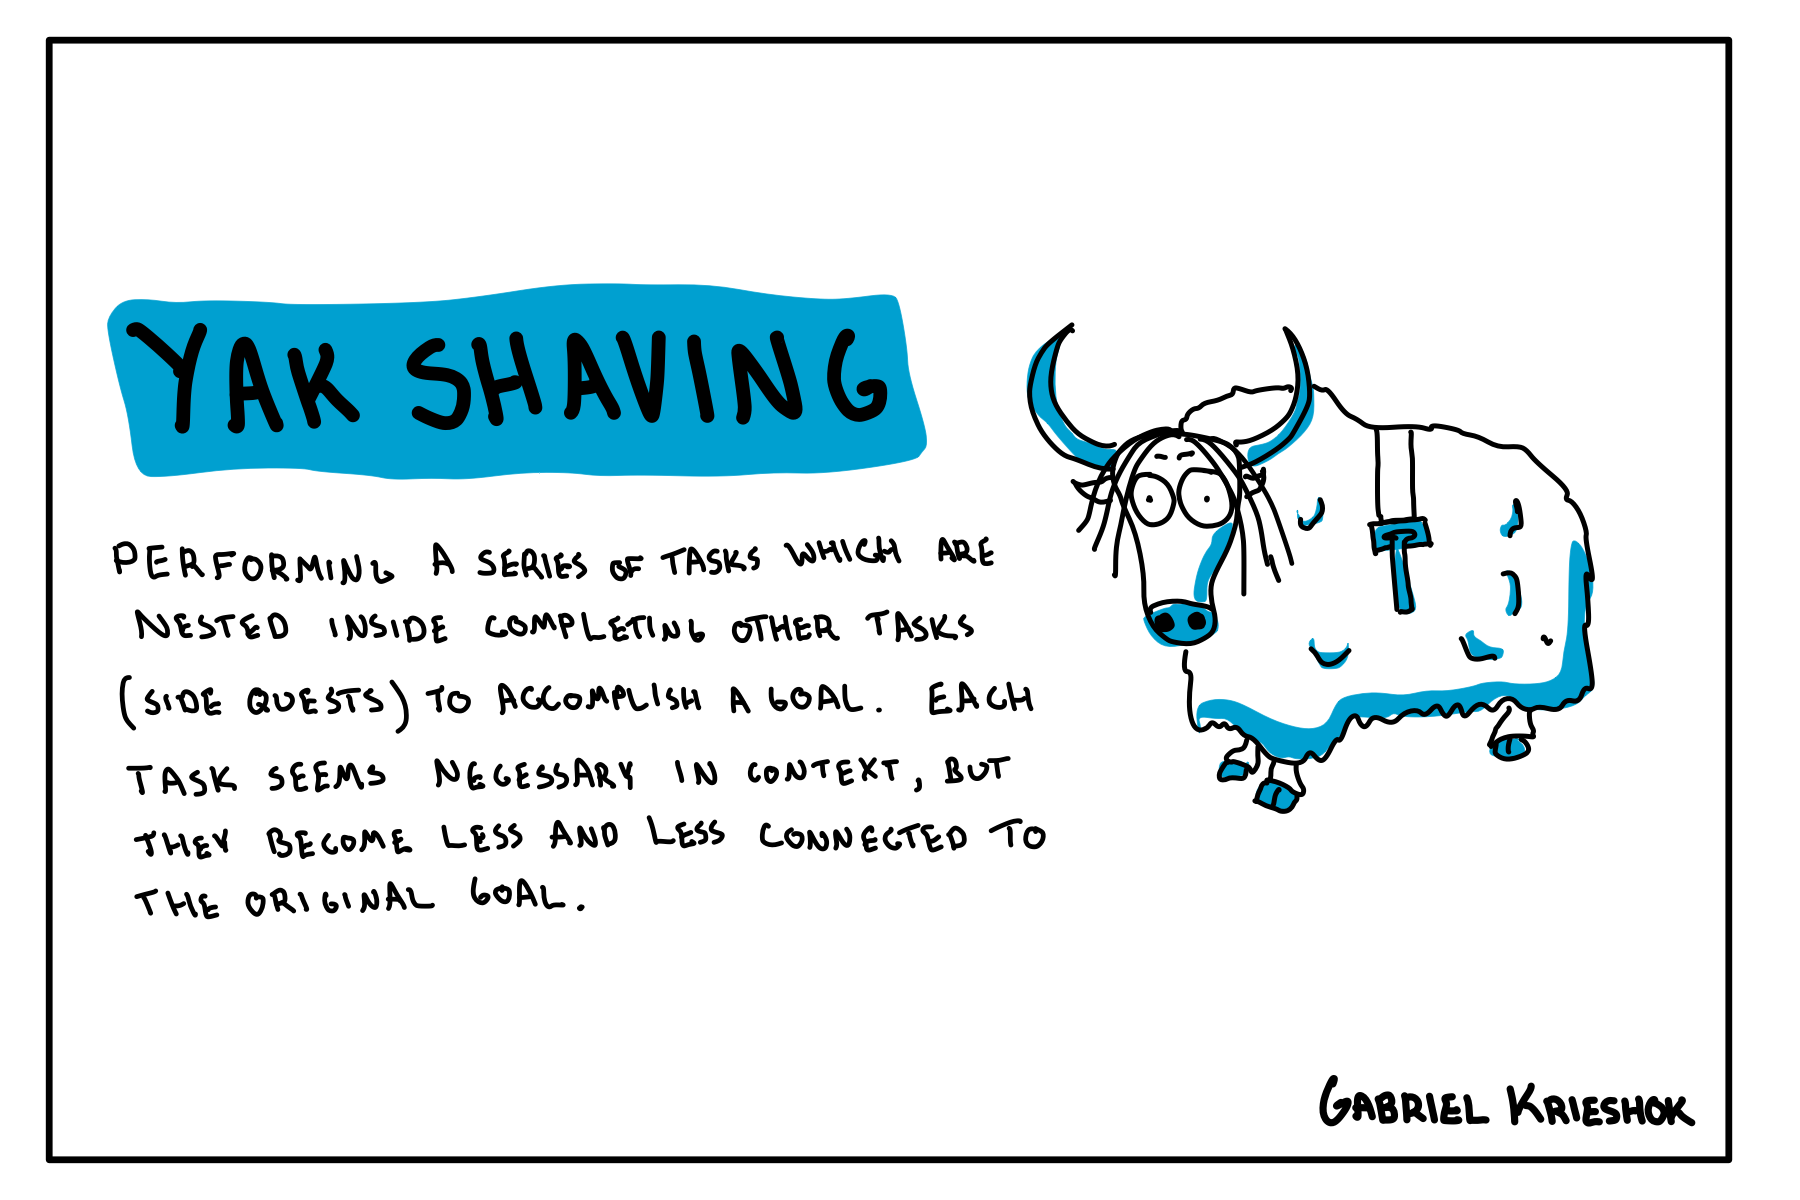 YAK SHAVING
PERFORMING A SERIES OF TASKS WHICH ARE
NESTED INSIDE COMPLETING OTHER TASKS
(SIDE QUESTS) TO ACCOMPLISH A GOAL. EACH
TASK SEEMS NECESSARY IN CONTEXT, BUT
THEY BECOME LESS AND LESS CONNECTED TO
THE ORIGINAL GOAL.
GABRIEL KRIESHOK